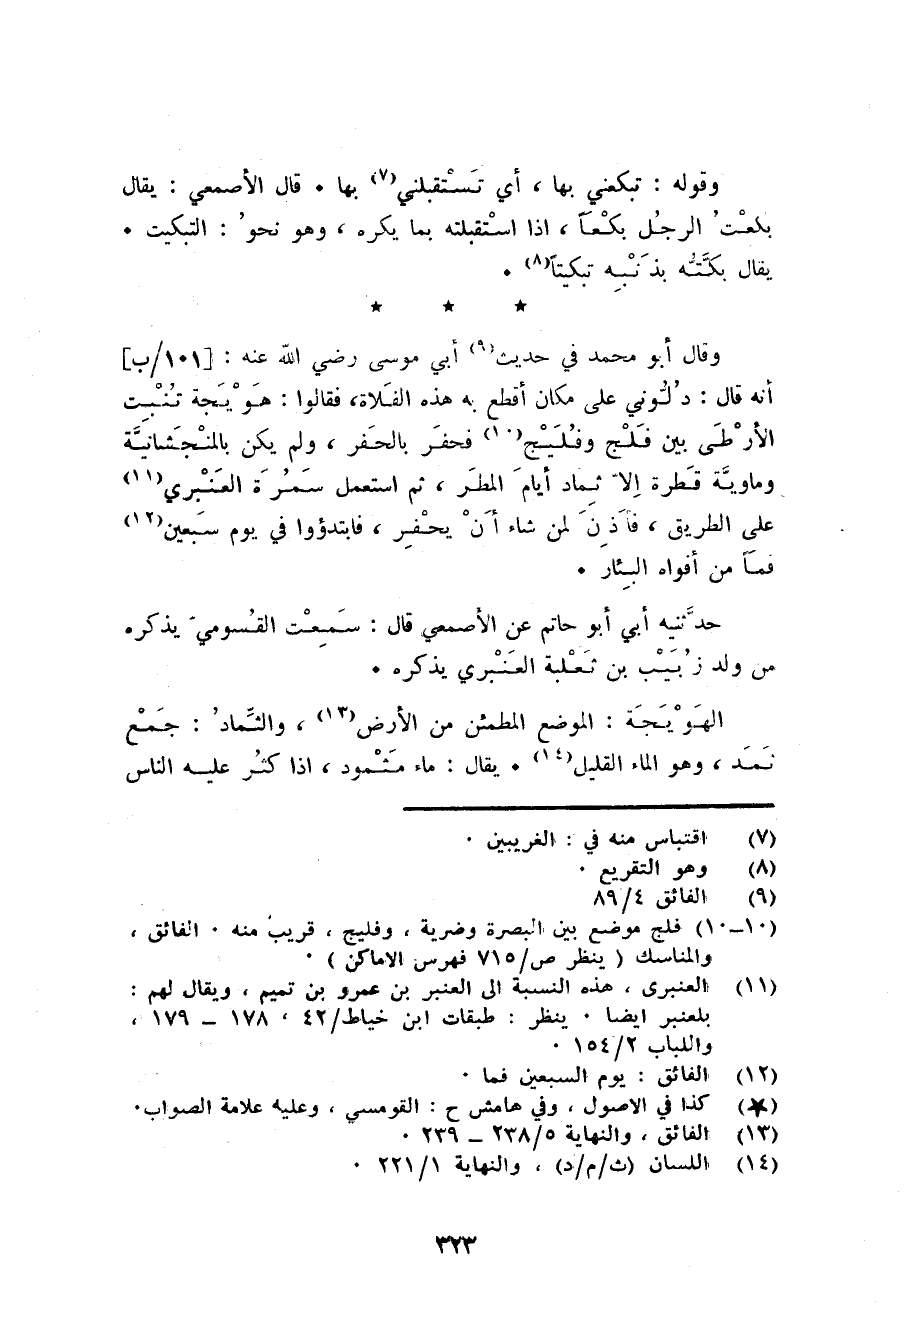 وقوله : تبكعني بها ، أي تَسْتقبلني(٧) بها . قال الأصمعي : يقال
بكعْتُ الرجلُ بكْعاً ، اذا استْقبلته بما يكره ، وهو نحوُ : التبكيت .
يقال بكَّتُّه بذَنْبِه تبكيتاً(٨) .
★ ★ ★
وقال أبو محمد في حديث(٩) أبي موسى رضي الله عنه : [١٠١/ب]
أنه قال : دُلُّوني على مكان أقطع به هذه الفَلاة، فقالوا : هَوْيَجة تُنْبِت
الأرْطَى بين فَلْج وفُلَيْج(١٠) فحفَر بالحَفر ، ولم يكن بالمنْجَشانيَّة
وماويَّة قَطرة إلاّ ثِماد أيامَ المطَر ، ثم استعمل سَمُرَة العَنْبري(١١)
على الطريق ، فأَذِنَ لمن شاء أَنْ يحْفِر ، فابتدؤوا في يوم سَبعين(١٢)
فماً من أفواه البِئار .
حدَّثنيه أبي أبو حاتم عن الأصمعي قال : سَمِعْت القُسوميّ يذكره
من ولد زُبَيْب بن ثَعْلبة العَنْبري يذكره .
الهَوْيَجَة : الموضع المطمئن من الأرض(١٣) ، والثَّمادُ : جَمْع
ثَمَد ، وهو الماء القليل(١٤) . يقال : ماء مَثْمود ، اذا كثُر عليه الناس
(٧) اقتباس منه في : الغريبين .
(٨) وهو التقريع .
(٩) الفائق ٨٩/٤
(١٠–١٠) فلج موضع بين البصرة وضرية ، وفليج ، قريب منه . الفائق ،
والمناسك ( ينظر ص/٧١٥ فهرس الاماكن ) .
(١١) العنبرى ، هذه النسبة الى العنبر بن عمرو بن تميم ، ويقال لهم :
بلعنبر ايضا . ينظر : طبقات ابن خياط/٤٢ ، ١٧٨ – ١٧٩ ،
واللباب ١٥٤/٢ .
(١٢) الفائق : يوم السبعين فما .
(★) كذا في الاصول ، وفي هامش ح : القومسي ، وعليه علامة الصواب.
(١٣) الفائق ، والنهاية ٢٣٨/٥ – ٢٣٩ .
(١٤) اللسان (ث/م/د) ، والنهاية ٢٢١/١ .
٣٢٣